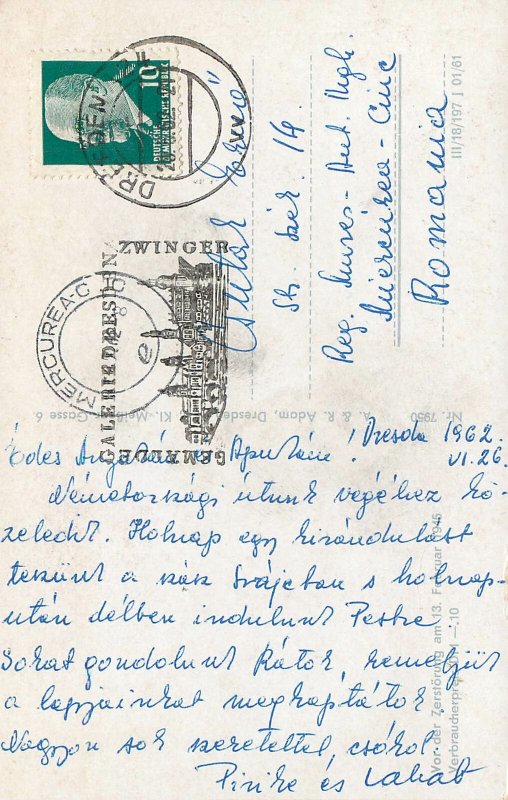 Drezda 1962.
VI. 26.
Édes Anyukám és Apukám!
Németországi útunk végéhez kö-
zeledik. Holnap egy kirándulást
teszünk a szász Svájcban s holnap-
után délben indulunk Pestre.
Sokat gondolunk Rátok, reméljük
a lapjainkat megkaptátok.
Nagyon sok szeretettel csókol
Piri és
Str. Szék. 14.
Reg. Mureș-Aut. Magh.
Miercurea-Ciuc
Romania
10
DEUTSCHE
DEMOKRATISCHE REPUBLIK
DRESDEN
GEMÄLDE
GALERIE DRESDEN
ZWINGER
MERCUREA-CIUC
III/18/197 J 01/61
Nr. 7950
A. & R. Adam, Dresden
Kl. Meißner Gasse 6
Vor der Zerstörung am 13. Februar 1945
Verbraucherpreis